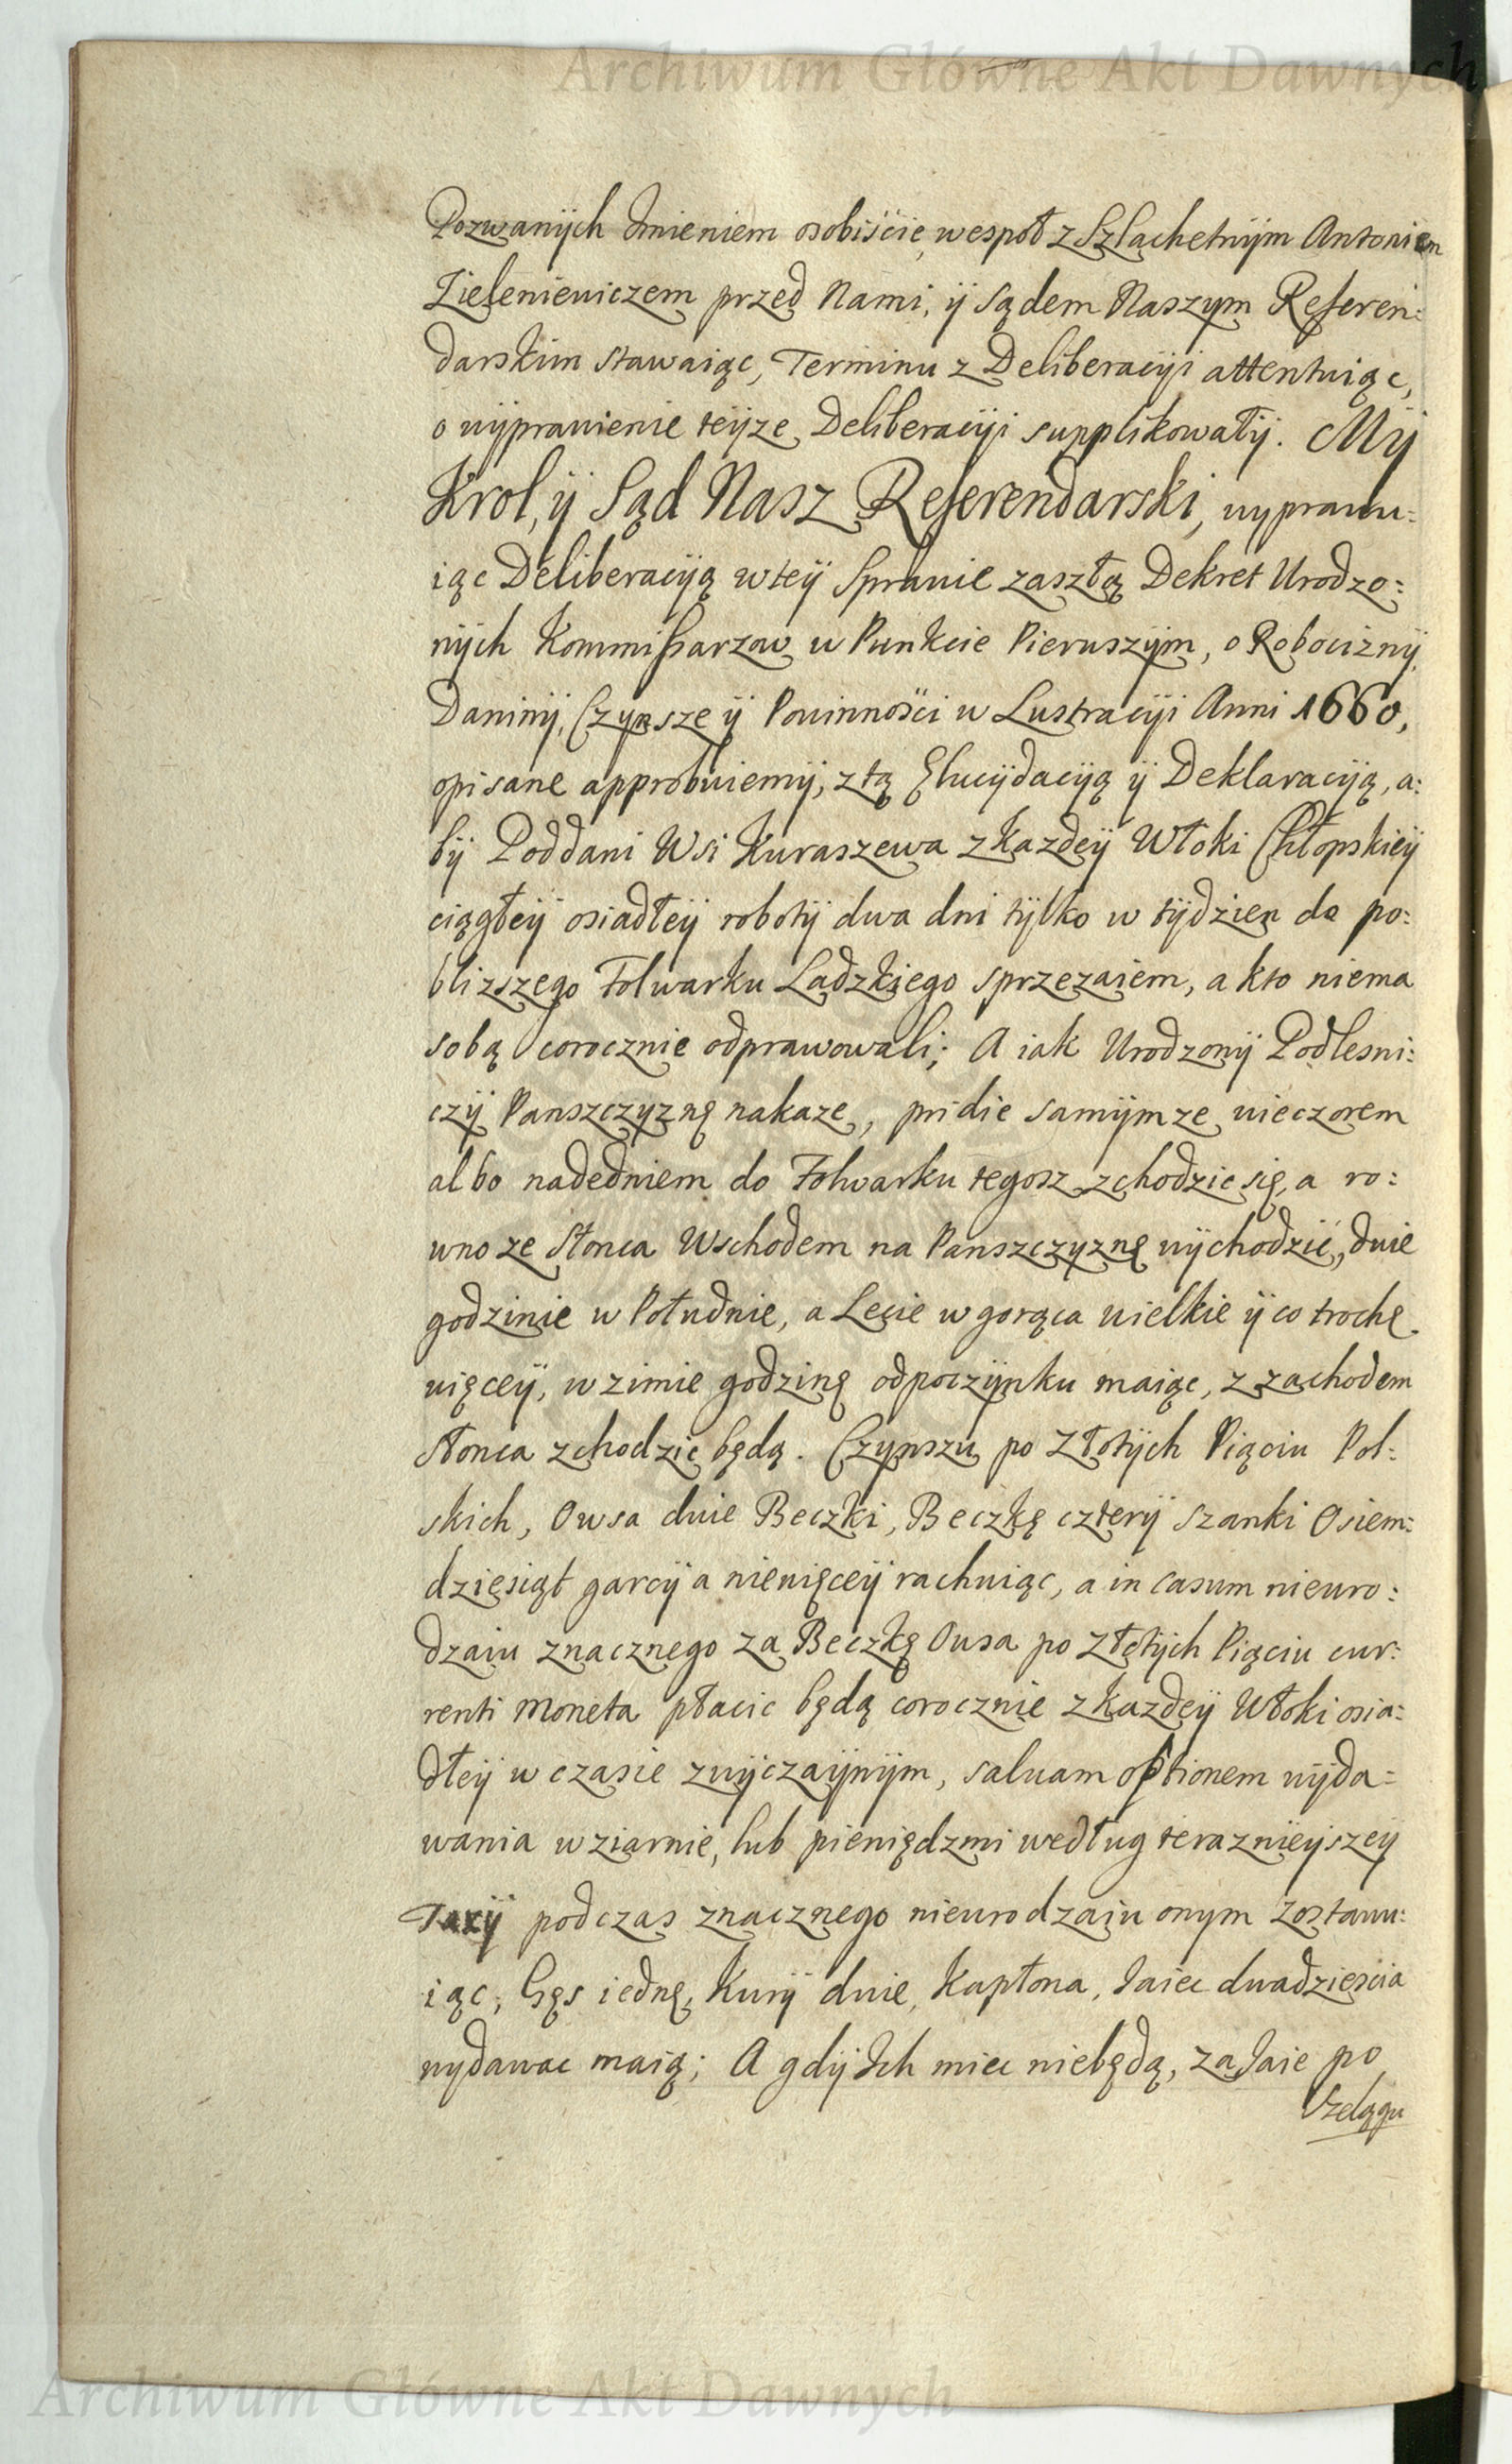 Archiwum Główne Akt Dawnych
Pozwanÿch Imieniem osobiście, wespoł z Szlachetnÿm Antoniem
Zieleniewiczem przed Nami, ÿ Sądem Naszym Referen:
darskim stawaiąc, Terminu z Deliberacÿi attentuiąc,
o wÿprawienie teÿże Deliberacÿi supplikowałÿ. Mÿ
Krol, ÿ Sąd Nasz Referendarski, wyprawu:
iąc Deliberacÿą w teÿ Sprawie zaszłą Dekret Urodzo:
nÿch Kommissarzow w Punkcie Pierwszÿm, o Robociznÿ,
Daninÿ, Czynsze ÿ Powinności w Lustracÿi Anni 1660,
opisane approbuiemÿ, z tą Elucÿdacÿą ÿ Deklaracÿą, a:
bÿ Poddani Wsi Kuraszewa z każdeÿ Włoki Chłopskieÿ
ciągłeÿ osiadłeÿ robotÿ dwa dni tÿlko w tÿdzien do po:
blizszego Folwarku Ladzkiego sprzezaiem, a kto niema
sobą corocznie odprawowali; A iak Urodzonÿ Podlesni:
czÿ Panszczyznę nakaze, pridie samÿmze wieczorem
albo nadedniem do Folwarku tegosz zchodzic się, a ro:
wno ze Słonca Wschodem na Panszczyznę wÿchodzić, dwie
godzinie w Południe, a Lecie w gorąca wielkie ÿ co trochę
więceÿ, w zimie godzinę odpoczÿnku maiąc, z zachodem
Słonca zchodzic będą. Czynszu po Złotÿch Pięciu Pol:
skich, Owsa dwie Beczki, Beczkę czterÿ szanki Osiem:
dziesiąt garcÿ a niewięceÿ rachuiąc, a in casum nieuro:
dzaiu znacznego za Beczkę Owsa po Złotÿch Pięciu cur:
renti moneta płacic będą corocznie z każdeÿ Włoki osia:
dłeÿ w czasie zwÿczaÿnÿm, salvam optionem wÿda:
wania w ziarnie, lub pieniędzmi według teraznieÿszeÿ
Taxÿ podczas znacznego nieurodzaiu onym zostawu:
iąc; Gęs iednę, Kurÿ dwie, Kapłona, Jaiec dwadziescia
wydawac maią; A gdÿ Ich miec niebędą, za Jaie po
Szelągu
Archiwum Główne Akt Dawnych